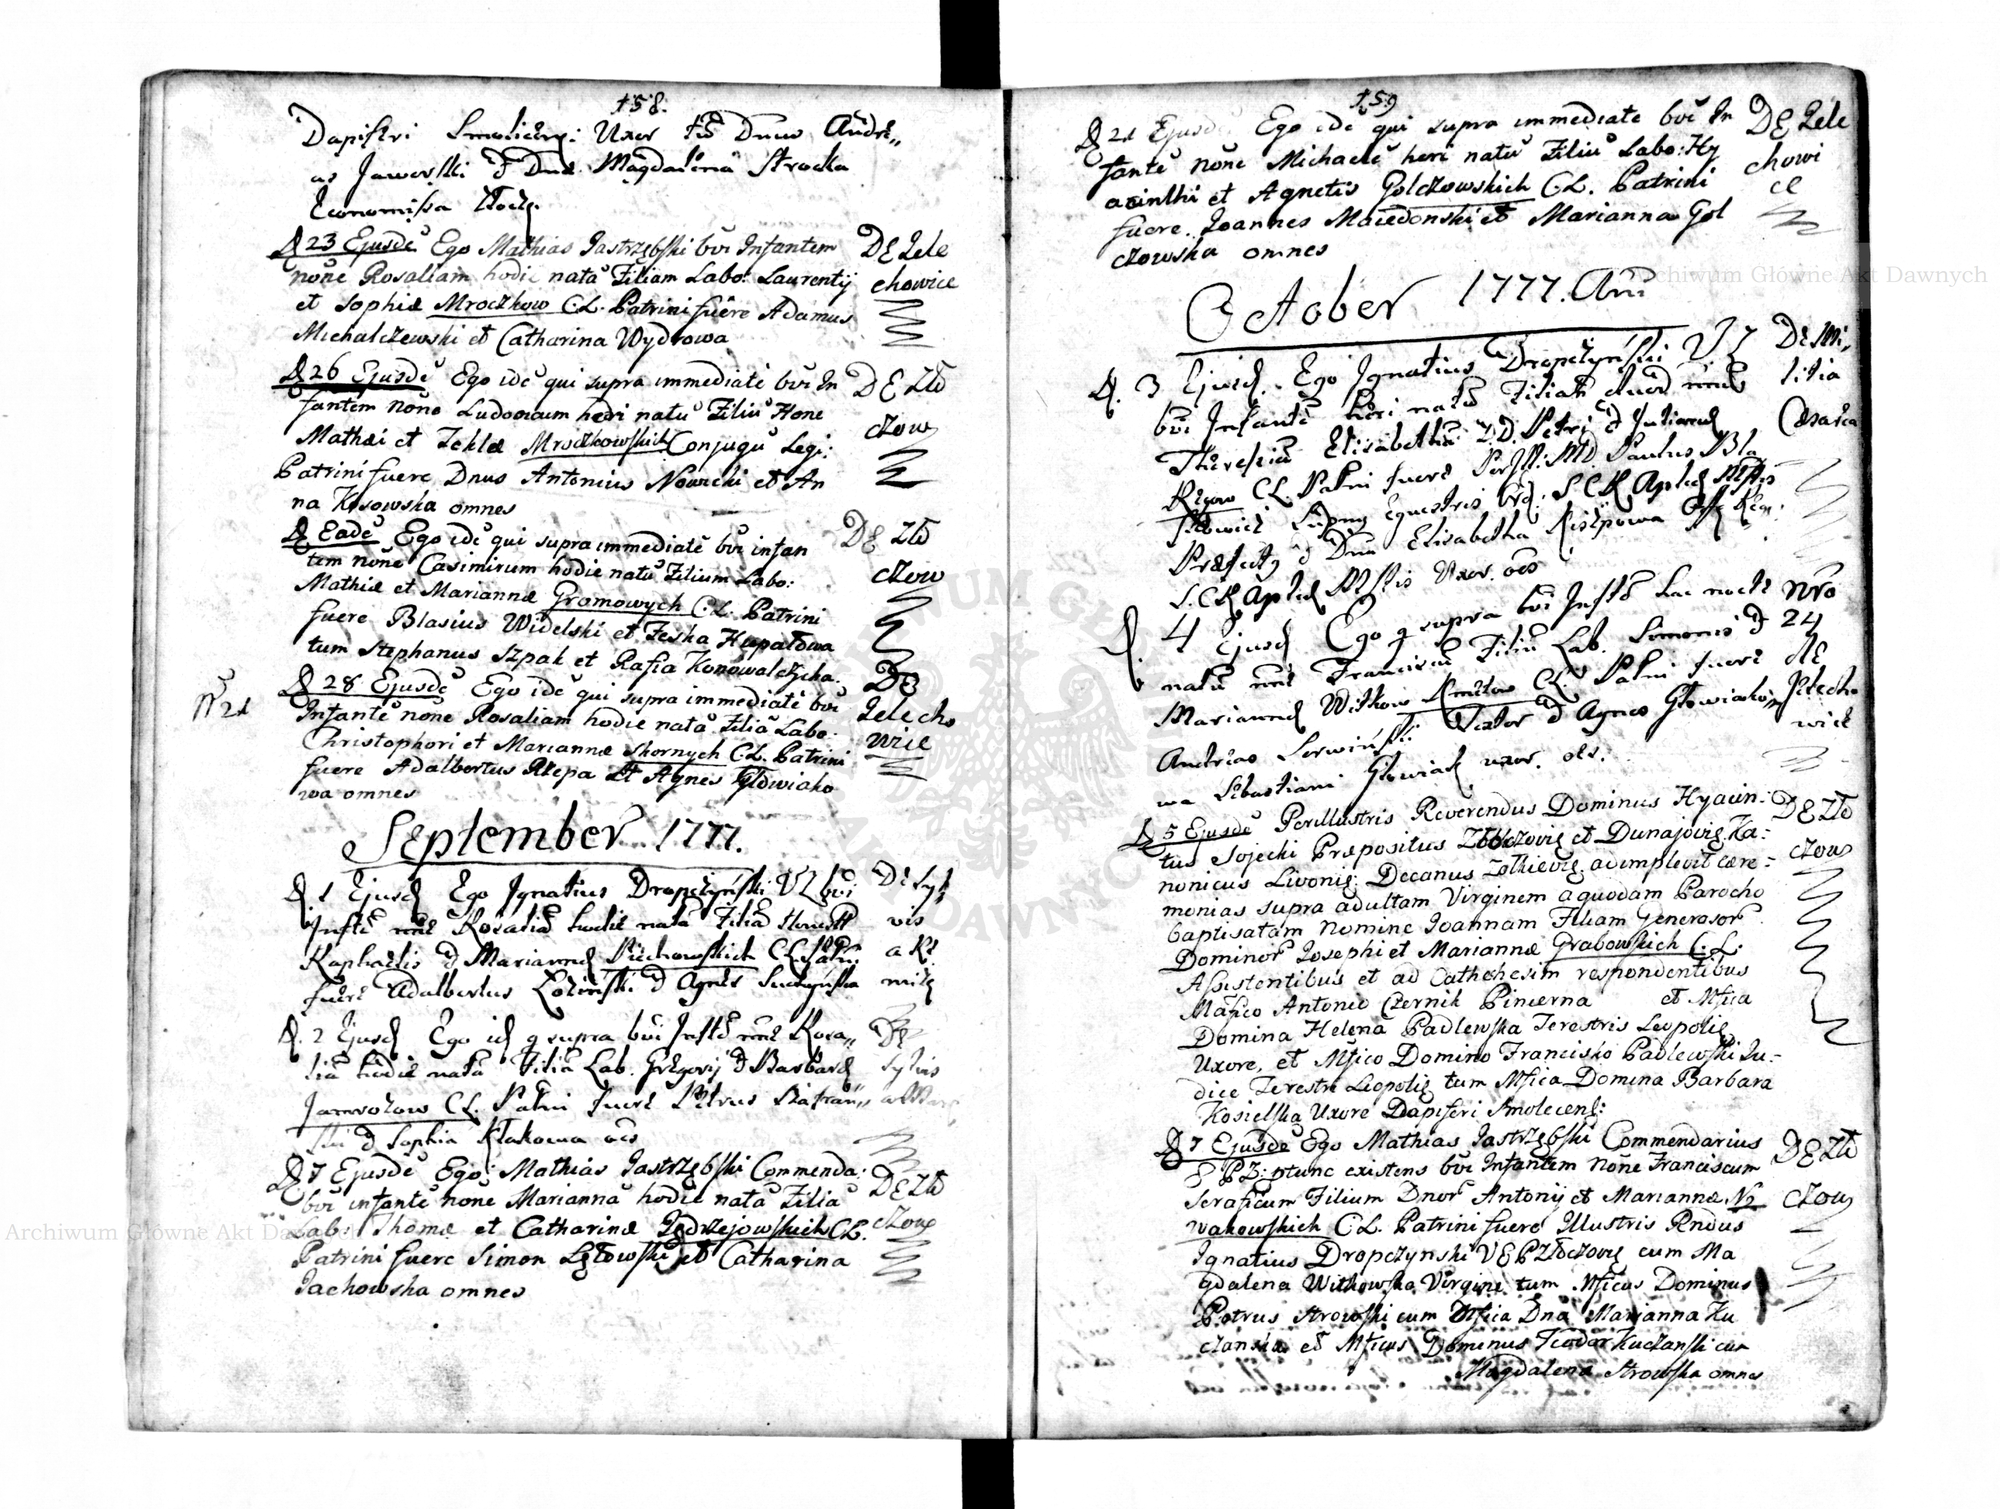 158.
Dapiferi Smolicens: Uxor tu Dnus Andre„
as Jaworski et Dna Magdalena Strocka
Economissa Złocz.
D 23 Ejusde Ego Mathias Jastrzębski bvi Infantem
none Rosaliam hodie nata Filiam Labo: Laurentij
et Sophiæ Mroczkow C.L. Patrini fuere Adamus
Michalczewski et Catharina Wydrowa
DE Zele
chowice
D 26 Ejusde Ego ide qui supra immediate bvi In
fantem None Ludovicum heri natu Filiu Hone
Mathæi et Teklæ Mroczkowskich Conjugu Legi:
Patrini fuere Dnus Antonius Nowicki et An
na Kosowska omnes
DE Zło
czow
D Eade Ego ide qui supra immediate bvi infan
tem none Casimirum hodie natu Filium Labo:
Mathiæ et Mariannæ Gromowych C.L. Patrini
fuere Blasius Widelski et Feska Hupałowa
tum Stephanus Szpak et Rafia Konowalczycha.
DE Zło
czow
N 21
D 28 Ejusde Ego ide qui supra immediate bvi
Infante none Rosaliam hodie nata Filia Labo:
Christophori et Mariannæ Skornych C.L. Patrini
fuere Adalbertus Rzepa Et Agnes Głowiako
wa omnes
DE
Zelecho
wice
September 1777.
D 1 Ejusd Ego Ignatius Dropczyński VZ bvi
Infte nne Rosalia hodie nata Filia Honestt
Raphaelis et Mariannæ Piechowskich C.L. Patri
fuere Adalbertus Łoziński et Agnes Suczyńska
De Syl
vis
a Rz
mich
D. 2 Ejusd Ego id q supra bvi Infte nne Rosa„
lia hodie nata Filia Lab. Gregorij et Barbaræ
Jamrozow CL. Patrni fuere Petrus
ski et Sophia Kłakowa oes
De
Sylvis
D 7 Ejusde Ego: Mathias Jastrzębski Commenda:
bvi infante none Marianna hodie nata Filia
Labo Thomæ et Catharinæ Jędrzejowskich C.L.
Patrini fuere Simon Łętowski et Catharina
Jachowska omnes
DE Zło
czow
159
D 21 Ejusde Ego ide qui supra immediate bvi In
fante none Michaele heri natu Filiu Labo: Hy
acinthi et Agnetis Golczowskich C.L. Patrini
fuere Joannes Macedonski et Marianna Gol
czowska omnes
DE Zele
chowi
ce
October 1777. Ani
D. 3 Ejusd. Ego Ignatius Dropczyński V.Z
bvi Infante heri nata Filiam duor nne
Theresia Elisabetha D.D. Petri et Julianæ
CL. Patrni fuere Perill: MD. Paulus Bla
Equestris Ord: S.C.R. Aplicæ Mttis
Præfecty et Dna Elisabetha
S.C.R. Aplicæ Mttis Uxor. oes
De Mi„
litia
Cæsarea
D. 4 Ejusd Ego q supra bvi Infte hac nocte
natu nne Franciscu Filiu Lab. Simonis et
Mariannæ Witkow CL. Patrni fuere
Andreas Serwiński et Agnes Głowiakow
wa Sebastiani Głowiak uxor. oes.
Nro
24
de
Zelecho
wice
D 5 Ejusde Perillustris Reverendus Dominus Hyacin:
tus Sojecki Præpositus Złoczovię et Dunajovię Ka:
nonicus Livonię: Decanus Zolkievię adimplevit cære=
monias supra adultam Virginem a quodam Parocho
baptisatam nomine Joannam Filiam Generosor
Dominor Josephi et Mariannæ Grabowskich C.L.
Assistentibus et ad Cathehesim respondentibus
Mafico Antonio Czernik Pincerna et Mfica
Domina Helena Padlewska Terestris Leopolię
Uxore, et Mfico Domino Francisko Padlewski Ju-
dice Terestri Leopolię tum Mfica Domina Barbara
Kosielska Uxore Dapiferi Smolecens:
DE Zło
czow
D 7 Ejusde Ego Mathias Jastrzębski Commendarius
E PZ: ptunc existens bvi Infantem None Franciscum
Seraficum Filium Dnor Antonij et Mariannæ No
wakowskich C.L. Patrini fuere Illustris Rndus
Ignatius Dropczynski V E P Złoczovię cum Ma
gdalena Witkowska Virgine tum Mficus Dominus
Petrus Strowski cum Mfica Dna Marianna Ku
czanska et Mficus Dominus Teodor Kuczanski cum
Magdalena Strowska omnes
DE Zło
czow
Archiwum Główne Akt Dawnych
Archiwum Główne Akt Dawnych